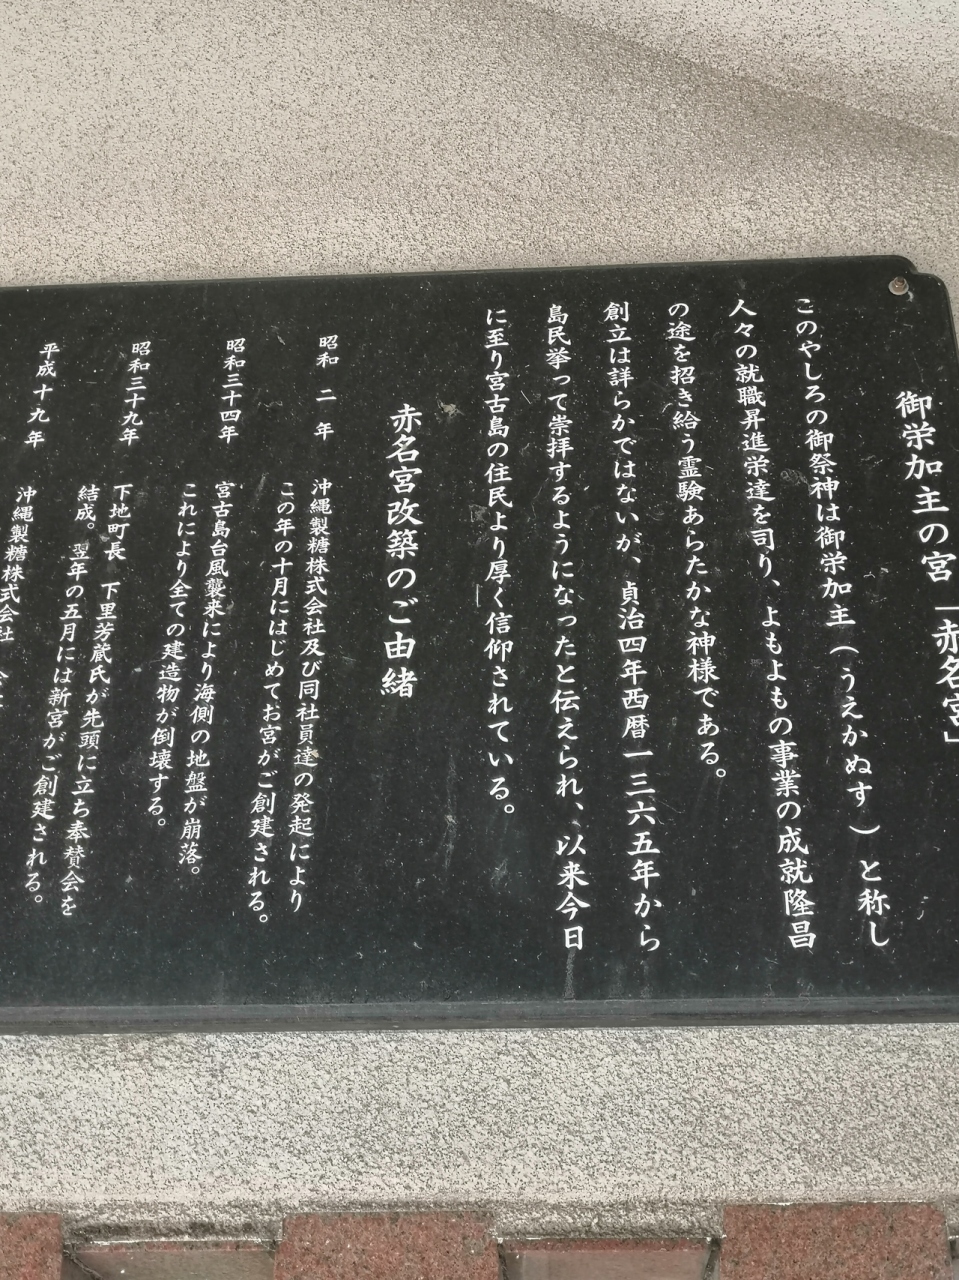 御栄加主の宮「赤名宮」
このやしろの御祭神は御栄加主(うえかぬす)と称し
人々の就職昇進栄達を司り、よもよもの事業の成就隆昌
の途を招き給う霊験あらたかな神様である。
創立は詳らかではないが、貞治四年西暦一三六五年から
島民挙って崇拝するようになったと伝えられ、以来今日
に至り宮古島の住民より厚く信仰されている。
赤名宮改築のご由緒
昭和 二 年 沖縄製糖株式会社及び同社員達の発起により
この年の十月にはじめてお宮がご創建される。
昭和三十四年 宮古島台風襲来により海側の地盤が崩落。
これにより全ての建造物が倒壊する。
昭和三十九年 下地町長 下里芳蔵氏が先頭に立ち奉賛会を
結成。翌年の五月には新宮がご創建される。
平成十九年 沖縄製糖株式会社